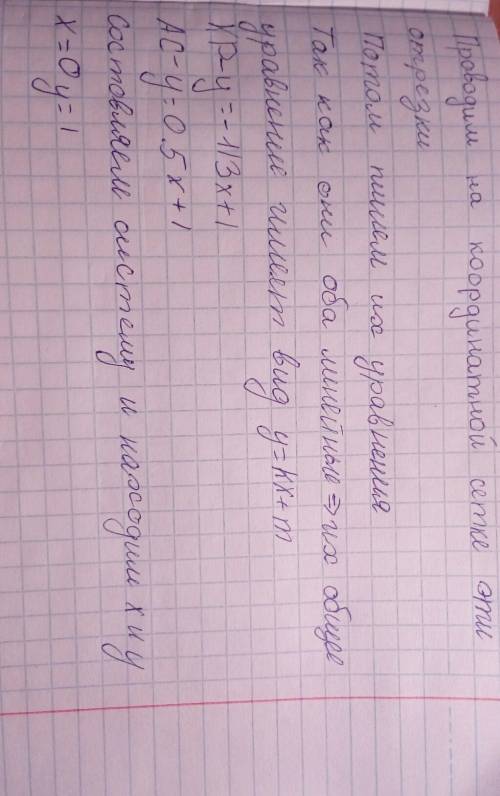 Проводим на координатной сетке эти
отрезки
Потом пишем их уравнения
Так как они оба линейные => их общее
уравнение имеет вид y=kx+m
XP-y=-1/3x+1
AC-y=0.5x+1
Состовляем систему и находим x и y
x=0 y=1